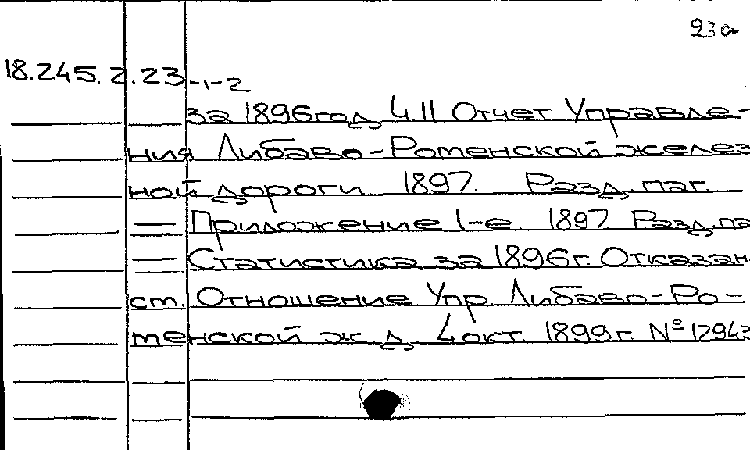 23а
18.245.2.23-1-2
за 1896 год Ч.II Отчет Управле-
ния Либаво-Роменской желез
ной дороги 1897. Разд. паг.
— Приложение I-е. 1897 Разд. па
— Статистика за 1896 г. Отказан
ст. Отношение Упр. Либаво-Ро-
менской ж. д. 4 окт. 1899 г. № 12943